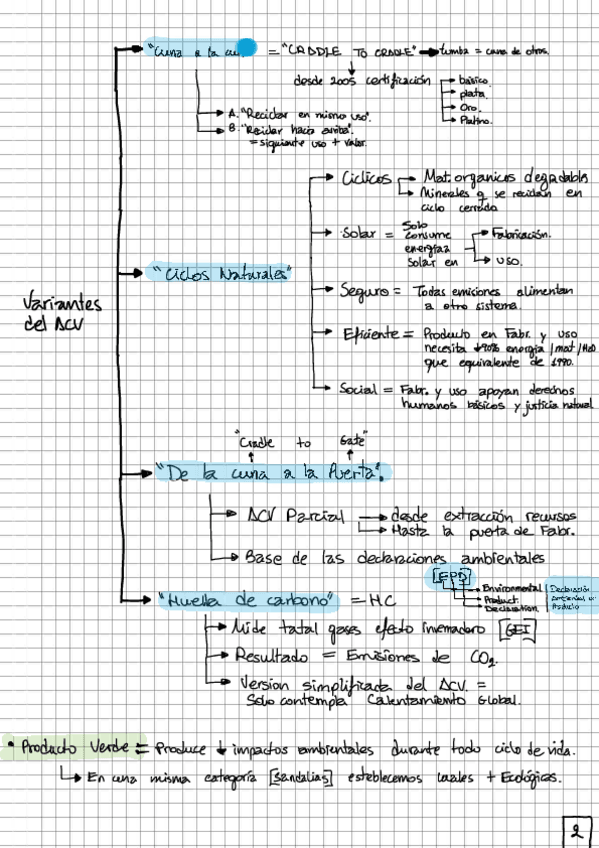 "Cuna a la cu
= "CRADDLE TO CRADLE" → tumba = cuna de otros.
desde 2005 certificación
básico.
plata.
Oro.
Platino.
A. "Reciclar en mismo uso".
B. "Reciclar hacia arriba".
= siguiente uso + valor.
Variantes
del ACV
"Ciclos Naturales"
Cíclicos
Mat. organicos degradable
Minerales q se reciclan en
ciclo cerrado
Solar = Solo
consume
energía
solar en
Fabricación.
uso.
Seguro = Todas emisiones alimentan
a otro sistema.
Eficiente = Producto en Fabr. y uso
necesita ↓90% energía /mat /H2O
que equivalente de 1990.
Social = Fabr. y uso apoyan derechos
humanos básicos y justicia natural
"Cradle to Gate"
"De la cuna a la Puerta".
ACV Parcial
desde extracción recursos
Hasta la puerta de Fabr.
Base de las declaraciones ambientales
[EPD]
Environmental
Product.
Declaration.
Declaración
Ambiental
Producto
"Huella de carbono" = HC
Mide total gases efecto invernadero [GEI]
Resultado = Emisiones de CO2.
Version simplificada del ACV. =
Solo contempla Calentamiento Global.
• Producto Verde = Produce ↓ impactos ambientales durante todo ciclo de vida.
En una misma categoría [sandalias] establecemos cuales + Ecológicas.
2